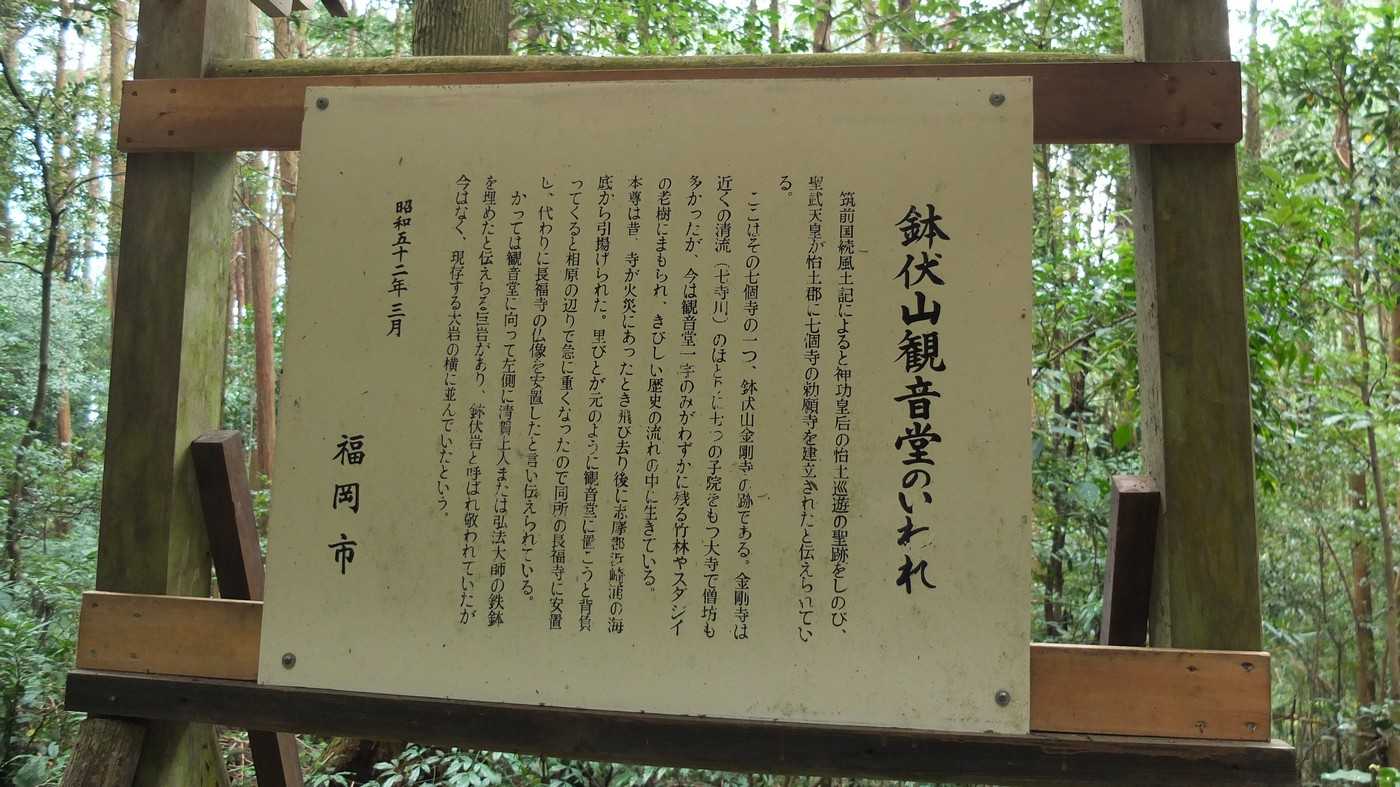 鉢伏山観音堂のいわれ
筑前国続風土記によると神功皇后の怡土巡遊の聖跡をしのび、
聖武天皇が怡土郡に七個寺の勅願寺を建立されたと伝えられてい
る。
ここはその七個寺の一つ、鉢伏山金剛寺の跡である。金剛寺は
近くの清流（七寺川）のほとりに七つの子院をもつ大寺で僧坊も
多かったが、今は観音堂一字のみがわずかに残る竹林やスダジイ
の老樹にまもられ、きびしい歴史の流れの中に生きている。
本尊は昔、寺が火災にあったとき飛び去り後に志摩郡浜崎浦の海
底から引揚げられた。里びとが元のように観音堂に置こうと背負
ってくると相原の辺りで急に重くなったので同所の長福寺に安置
し、代わりに長福寺の仏像を安置したと言い伝えられている。
かつては観音堂に向って左側に清賀上人または弘法大師の鉄鉢
を埋めたと伝えらる巨岩があり、鉢伏岩と呼ばれ敬われていたが
今はなく、現存する大岩の横に並んでいたという。
昭和五十二年三月
福岡市